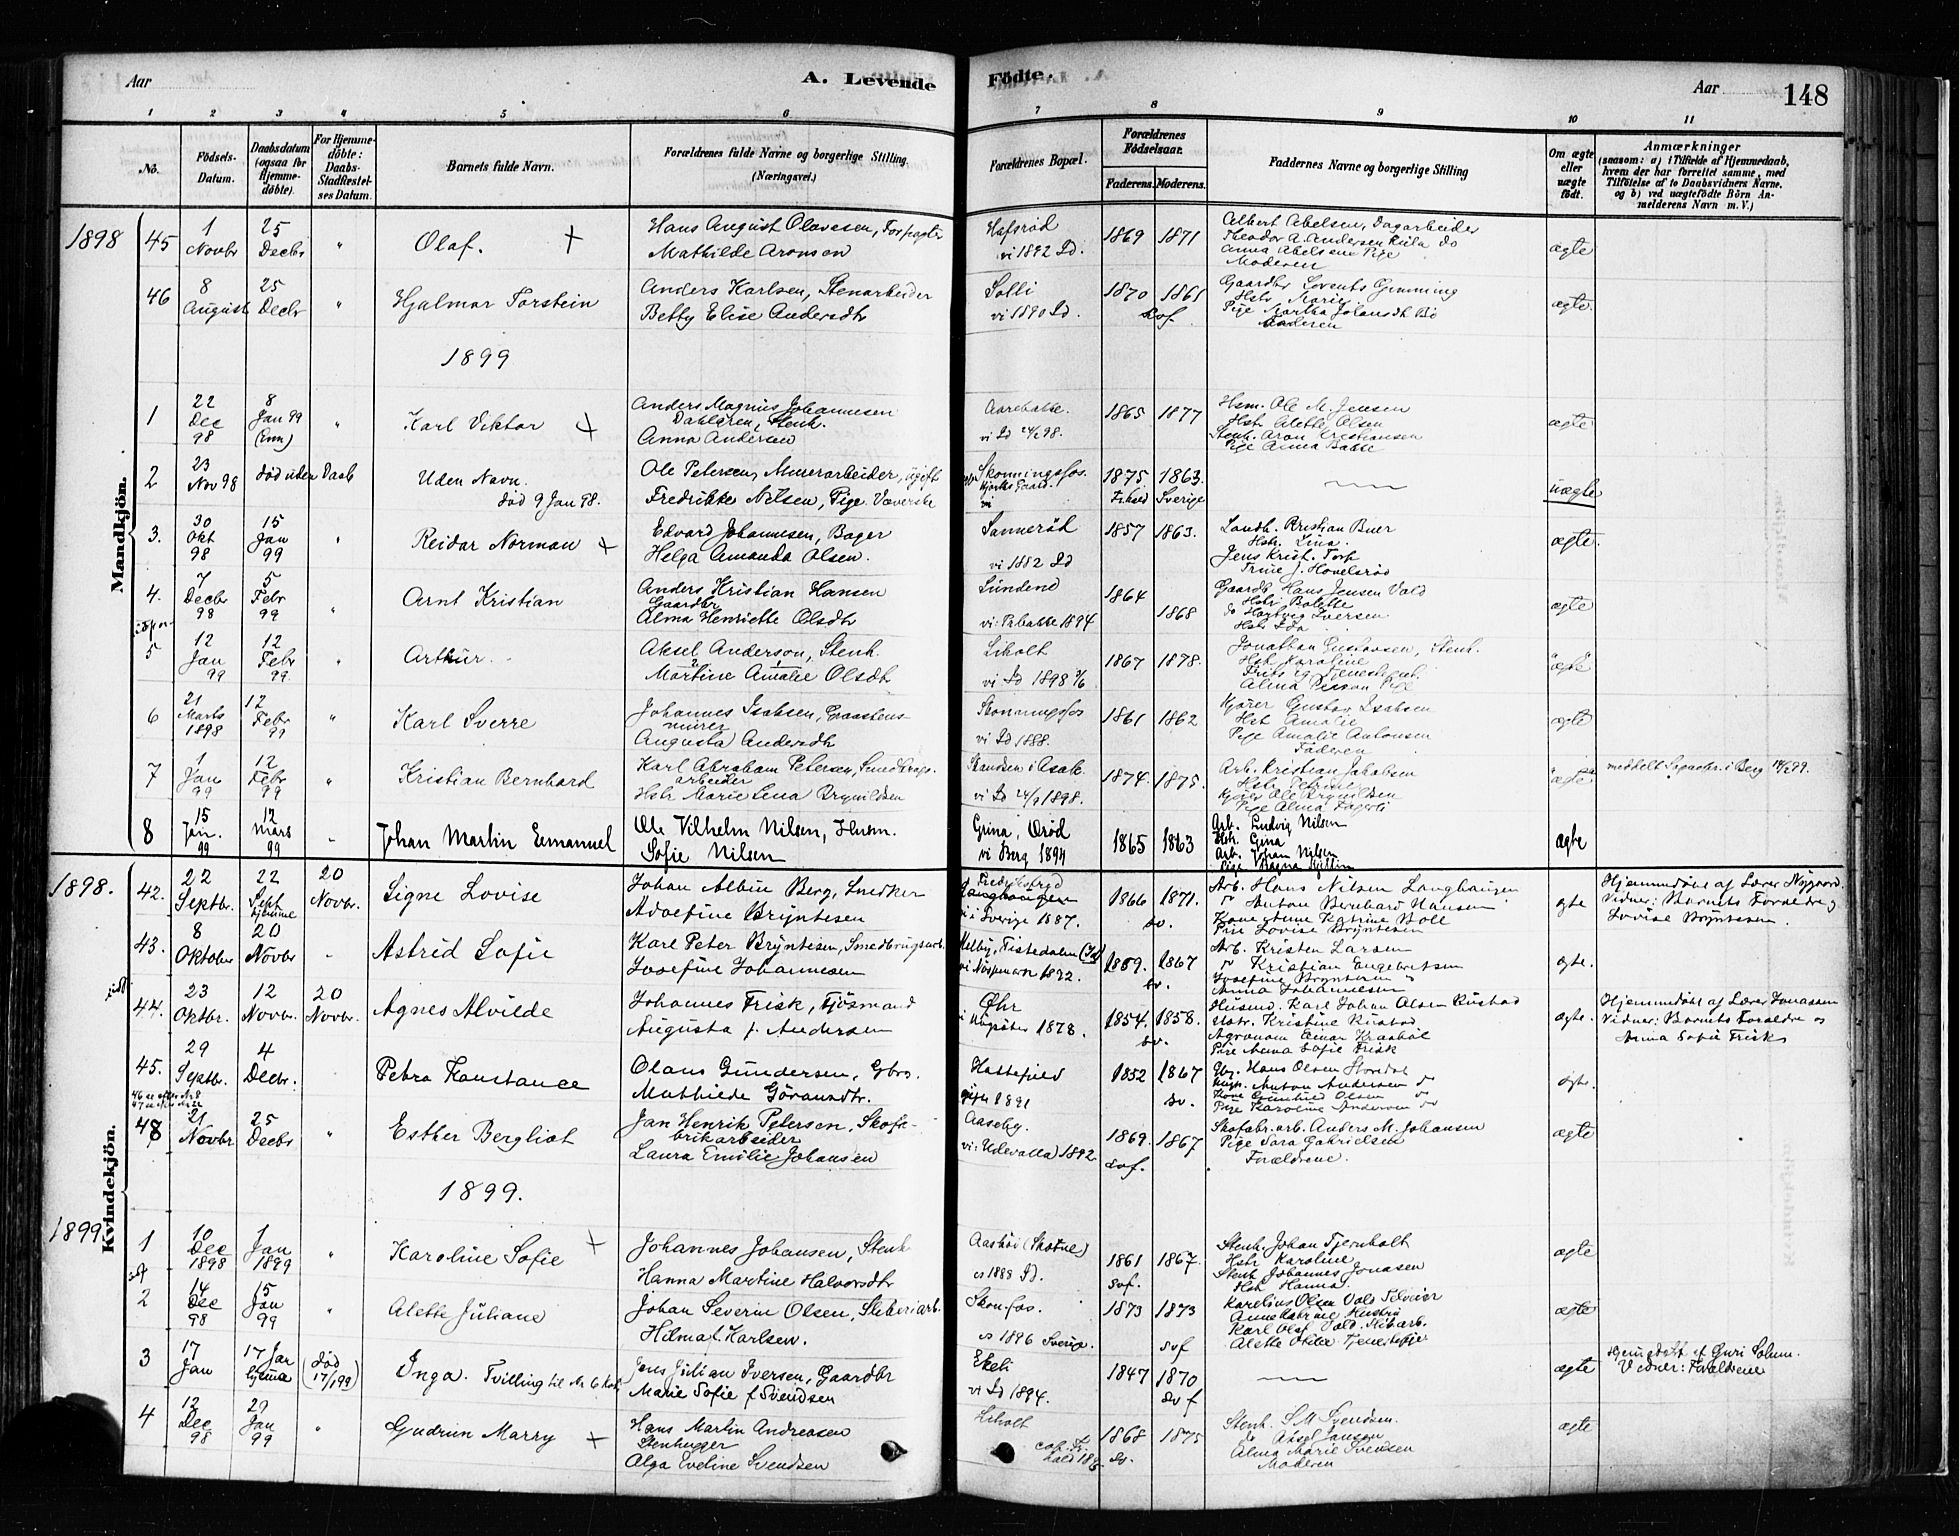 Aar
A. Levende
Födte.
Aar
148
1 2 3 4 5 6 7 8 9 10 11
No.
Födsels-Datum.
Daabsdatum (ogsaa for Hjemme-döbte).
For Hjemme-döbte: Daabs-Stadfæstel-ses Datum.
Barnets fulde Navn.
Forældrenes fulde Navne og borgerlige Stilling. (Næringsvei.)
Forældrenes Bopæl.
Forældrenes Födselsaar.
Faderens. Moderens.
Faddernes Navne og borgerlige Stilling
Om ægte eller uægte födt.
Anmærkninger
(saasom: a) i Tilfælde af Hjemmedaab, hvem der har forrettet samme, med Tilföielse af to Daabsvidners Navne. og b) ved uægtefödte Börn An-melderens Navn m. V.)
Mandkjön.
1898 45 1 Novbr 25 Decbr " Olaf. + Hans August Olavesen, Forpagter
Mathilde Aronsen
Hafsrød
vi 1892 Id. 1869 1871
Albert Abelsen, Dagarbeider
Theodor A. Andersen do
Anna Abelsene Pige
Moderen
ægte
46 8 August 25 Decbr " Hjalmar Torstein
Anders Karlsen, Stenarbeider
Betty Elise Andersdtr
Solli
vi 1890 Id. 1870 1865
Hstr Marie
Pige Martha
ægte
1899
1 22 Dec 98 8 Jan 99 " Karl Viktor +
Anders Magnus Johannesen
Dahlgren, Stenh.
Anna Andersen
Aarebakke.
vi Id 98. 1865 1877
Hsm. Ole M. Jensen
Hstr Alette Olsen
Stenh. Aron Kristiansen
Pige Anna Bakke
ægte
2 23 Nov 98 död uden Daab Uden Navn.
död 9 Jan 98.
Ole Petersen, Murerarbeider, ugift
Fredrikke Nilsen, Pige Væverske
Skonningsfos. 1875 1863.
Sverige
uægte
3. 30 Okt 98 15 Jan 99 " Reidar Norman +
Edvard Johannesen, Bager
Helga Amanda Olsen.
Sannerød
vi 1882 Id 1857 1863.
Landh. Kristian Buer
Hstr. Lina.
Jens Krist. Torp
Trine J. Hovelsrød
ægte.
4. 7 Decbr 98 5 Febr 99 " Arnt Kristian
Anders Kristian Hansen
Gaardbr
Alma Henriette Olsdtr
Lundend 1864 1868
Gaardb Hans Jensen Vold
Hstr Bolette
do Hartvig Iversen
Hstr Ida
ægte
5 12 Jan 99 12 Febr 99 " Arthur.
Aksel Anderson, Stenh.
Martine Amalie Olsdtr
Liholt
vi Id 1898 1867 1878.
Jonathan Gustavsen, Stenh.
Hstr Karoline
Alma Person Pige
ægte
6 21 Marts 1898 12 Febr 99 " Karl Sverre
Johannes Isaksen, Graastens-
murer
Augusta Andersdtr
Skonningsfos
vi Id 1888. 1861 1862
Kjører Gustav Isaksen
Hstr Amalie
Pige Amalie Antonsen
Faderen
ægte
7 1 Jan 99 12 Febr 99 " Kristian Bernhard
Karl Abraham Petersen, Smedbrugs-
arbeider
Hstr Marie Lena Brynildsen
vi Id 1898. 1874. 1875.
Arb. Kristian Jakobsen
Kjører Ole Brynildsen
Pige Alma
ægte
8 15 Jan. 99 12 Mars 99 " Johan Martin Emanuel
Ole Vilhelm Nilsen, Husm.
Sofie Nilsen
Grina, Ørød
vi Berg 1894 1865 1863
Arb. Ludvig Nilsen
Hstr. Gina
Arb. Johan Nilsen
ægte
Kvindekjön.
1898. 42. 22 Septbr. 22 Sept hjemme 20 Novbr. Signe Lovise
Johan Albin Berg, Snedker
Adolfine Bryntesen
vi i Sverige 1887. 1866 1871. sv.
Arb. Hans Nilsen Langhaugen
" Anton Bernhard Hansen
Kone Anne Katrine Boll
Pige Lovise Bryntesen
ægte
Hjemmedøbt af Lærer Nygaard.
Vidner: Barnets Forældre og
Lovise Bryntesen.
43. 8 Oktober 20 Novbr " Astrid Sofie
Karl Peter Bryntesen, Smedbrugsarb.
Josefine Johannesen
Tistedalen
1892. 1859. 1867 sv.
Arb. Kristen Larsen
" Kristian Engebretsen
Josefine Bryntesen
Anna Johannesen
ægte.
44. 23 Oktbr. 12 Novbr. 20 Novbr. Agnes Alvilde
Johannes Frisk, Fjøsmand
Augusta f. Andersen
Øhr
1878. 1854. 1858. sv.
Husmd. Karl Johan Olsen Rustad
Hstr. Kristine Rustad
Agronom Einar Kraabøl
Pige Anna Sofie Frisk
ægte.
Hjemmedøbt af Lærer Jonassen
Vidner: Barnets Forældre og
Anna Sofie Frisk
45. 29 Septbr. 4 Decbr. Petra Konstance
Olaus Gundersen, Gbr.
Mathilde Göransdtr.
1891 1852 1867 sv.
Gbr. Hans Olsen
Anton Andersen do
Kone Gunhild Olsen do
Pige Karoline Andersen do
ægte.
48 21 Novbr 25 Decbr " Esther Bergliot
Jan Henrik Petersen, Skofa-
brikarbeider
Laura Emilie Johansen
Aaseby.
vi: Udevalla 1892 1869. 1867 svf.
Skofabr. arb. Anders M. Johansen
Pige Sara Gabrielsen
Forældrene.
ægte
1899.
1899 1 10 Dec 1898 1 Jan 1899 " Karoline Sofie +
Johannes Johansen, Stenh
Hanna Martine Halvorsdtr
1888 Id. 1861 1867. svf.
Stenh. Johan Tjernholt
Hstr Karoline
Stenh Johannes Jonasen
Hstr Hanna.
ægte
2 14 Dec 98 15 Jan 99 " Alette Juliane
Johan Severin Olsen, Sliberiarb.
Hilma f. Karlsen.
Skonfos.
1896 Sverige 1873 1873 svf
Karelius Olsen Vold
Annekatrine Hustru
Karl Olsf Vold.
Alette Otilie Tjenestepige
ægte
3 17 Jan 17 Jan hjemme (död 17/1 99) Inga. Tvilling til No 6
Jens Julian Iversen, Gaardbr
Marie Sofie f Svendsen
Ekeli
vi Id 1894. 1847 1870 sv f
ægte
Hjemmedøbt af Guri Solum.
Vidner: Forældrene
4 12 Dec 98 29 Jan 99 " Gudrun Marry +
Hans Martin Andreasen
Stenhugger
Olga Eveline Svendsen
Liholt 1868 1875 sv.
Stenh. S M Svendsen.
do Aksel Jansen
Elma Marie Svendsen
Moderen
ægte